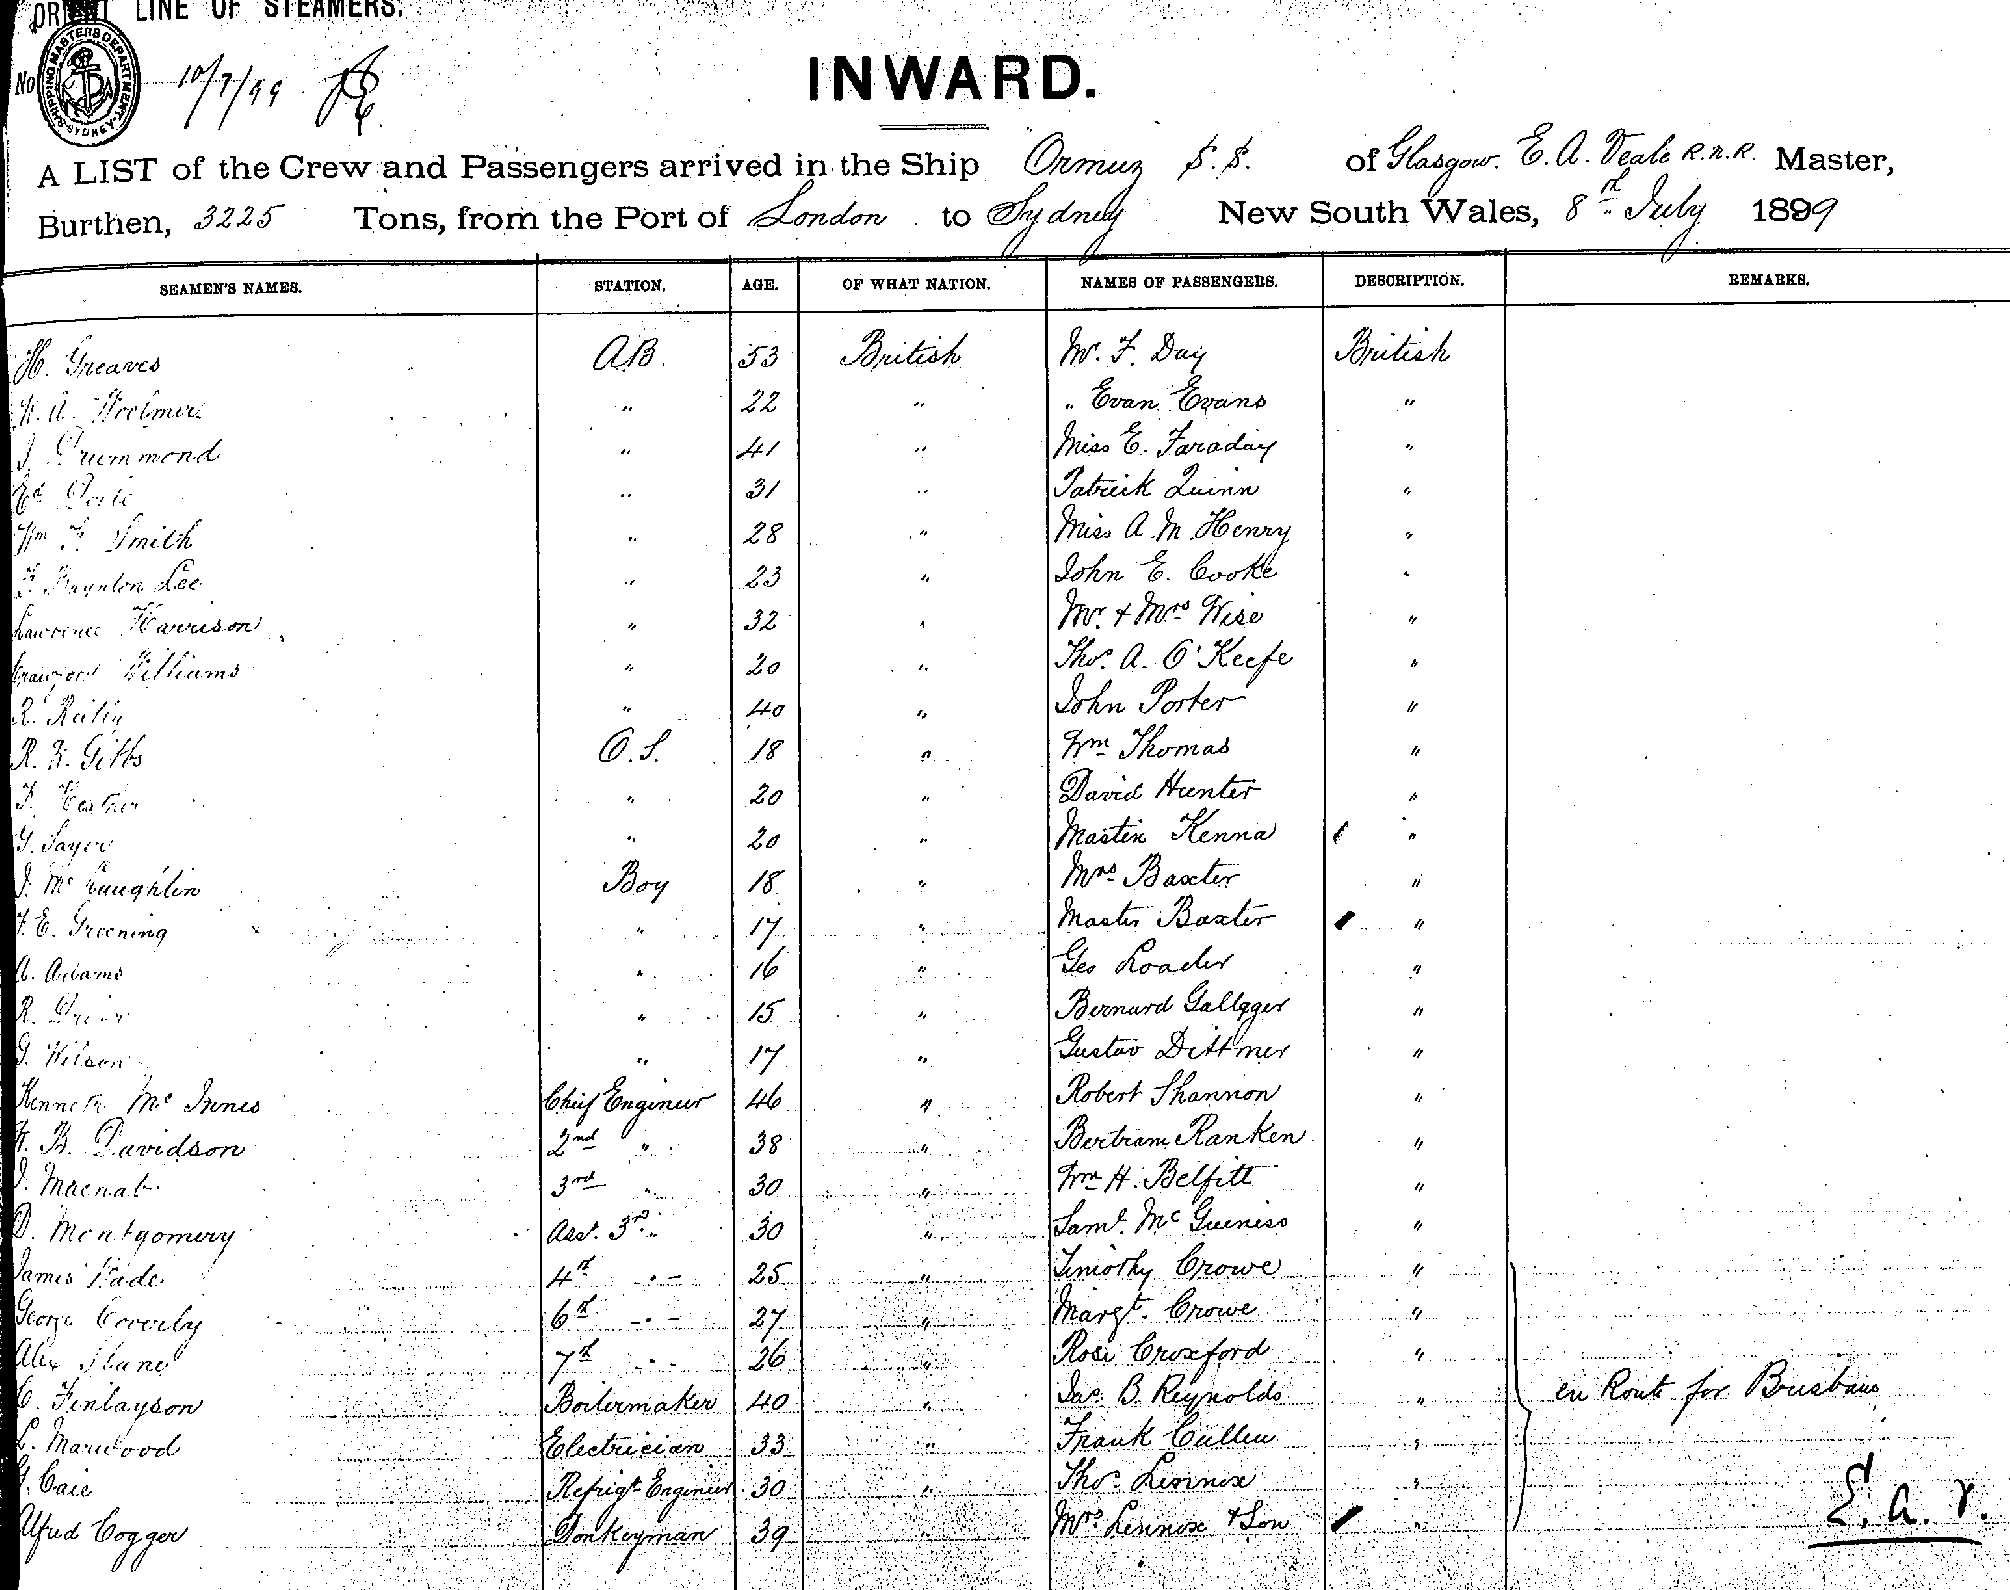 ORIENT LINE OF STEAMERS.
SHIPPING MASTERS DEPARTMENT SYDNEY
No 10/7/99
INWARD.
A LIST of the Crew and Passengers arrived in the Ship Ormuz S.S. of Glasgow. E. A. Veale R.N.R. Master,
Burthen, 3225 Tons, from the Port of London to Sydney New South Wales, 8th July 1899
SEAMEN'S NAMES. STATION. AGE. OF WHAT NATION. NAMES OF PASSENGERS. DESCRIPTION. REMARKS.
H. Greaves AB. 53 British Mr. F. Day British
W. A. Woolmer " 22 " " Evan Evans "
J. Drummond " 41 " Miss E. Faraday "
Ed " 31 " Patrick Quinn "
Wm F. Smith " 28 " Miss A. M. Henry "
F. Lee " 23 " John E. Cooke "
Lawrence Harrison " 32 " Mr. & Mrs Wise "
Crawford Williams " 20 " Thos. A. O'Keefe "
R. Reilly " 40 " John Porter "
R. W. Gibbs O.S. 18 " Wm Thomas "
F. " 20 " David Hunter "
G. Sayer " 20 " Martin Kenna "
J. McLaughlin Boy 18 " Mrs Baxter "
F. E. Greening " 17 " Master Baxter "
A. Adams " 16 " Geo Loader "
R. " 15 " Bernard Gallgger "
G. Wilson " 17 " Gustav Dittmer "
Kenneth McInnes Chief Engineer 46 " Robert Shannon "
W. B. Davidson 2nd " 38 " Bertram Ranken "
J. Macnab 3rd " 30 " Wm H. Belfitt "
D. Montgomery Asst. 3rd " 30 " Saml. McGuiness "
James Wade 4th " 25 " Timothy Crowe "
George Coverly 6th " 27 " Margt. Crowe "
Alex Shand 7th " 26 " Rose Croxford "
C. Finlayson Boilermaker 40 " Jas. B. Reynolds " en Route for Brisbane
L. Marwood Electrician 33 " Frank Cullen "
G. Caie Refrigt. Engineer 30 " Thos. Lennox "
Alfred Cogger Donkeyman 39 " Mrs. Lennox & Son "
E. A. V.